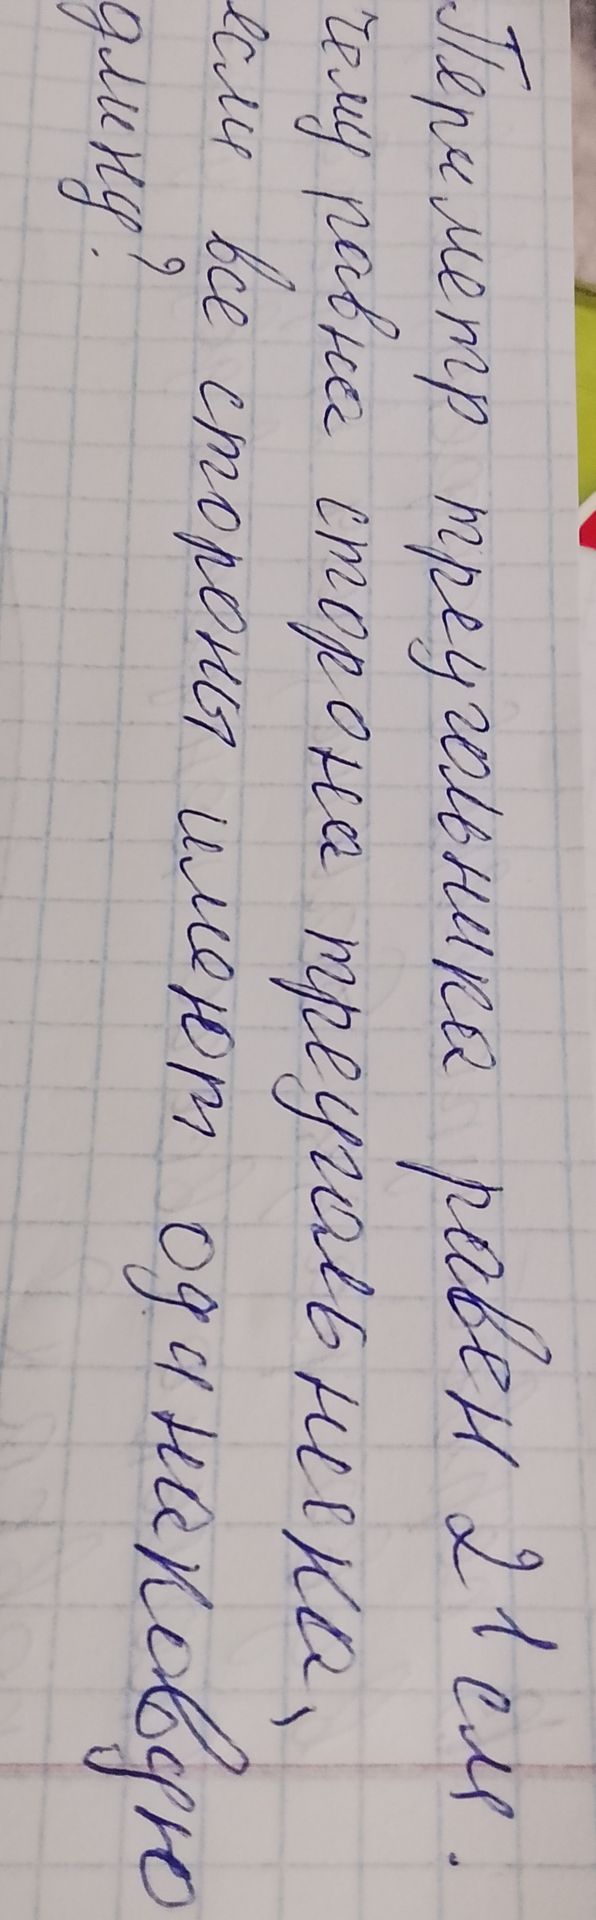 Периметр треугольника равен 21 см.
Чему равна сторона треугольника,
если все стороны имеют одинаковую
длину?